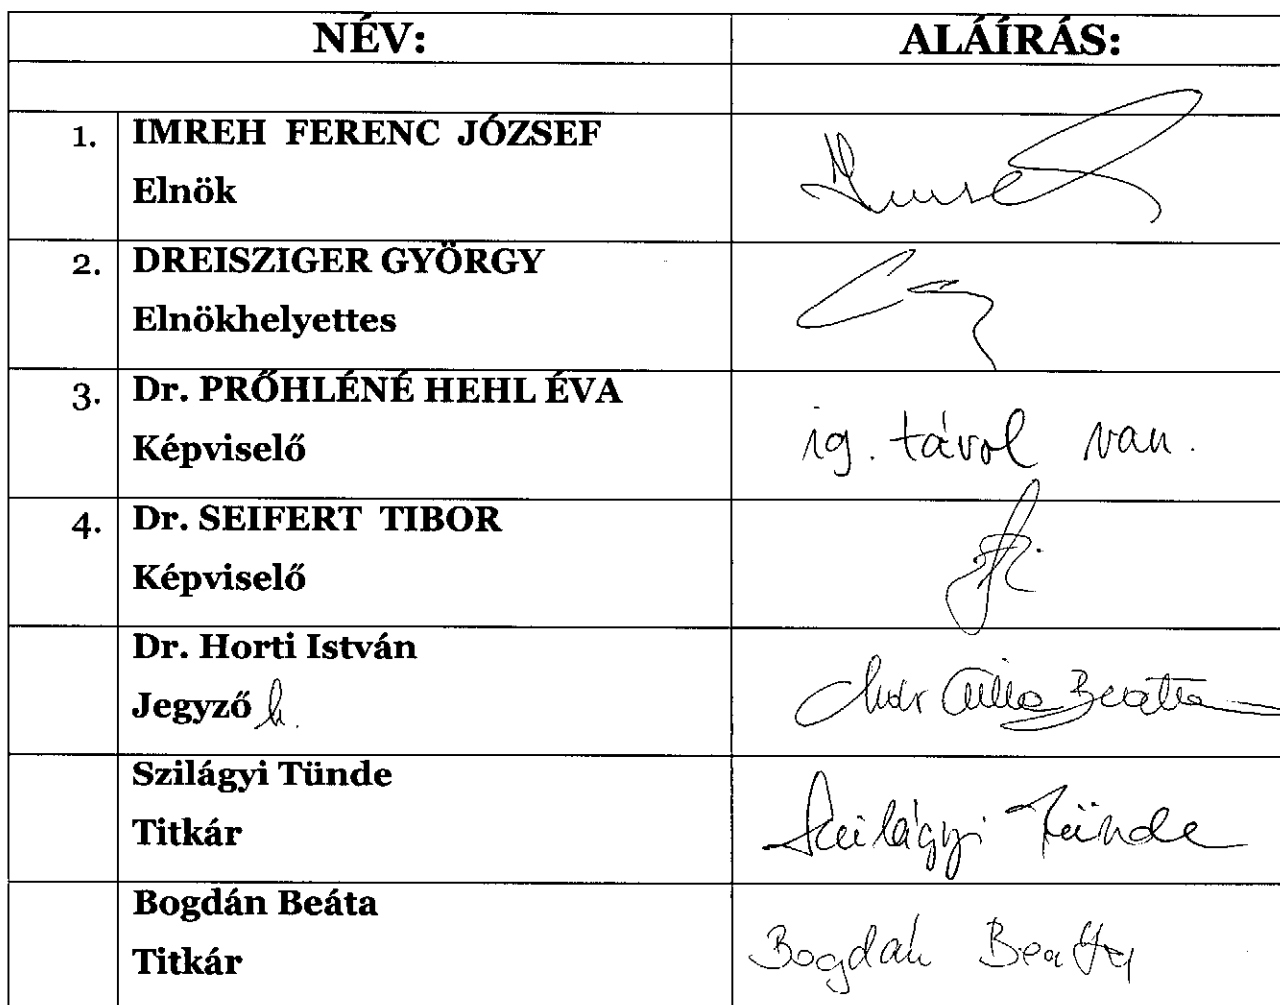 NÉV: ALÁÍRÁS:
1. IMREH FERENC JÓZSEF
Elnök
2. DREISZIGER GYÖRGY
Elnökhelyettes
3. Dr. PRŐHLÉNÉ HEHL ÉVA
Képviselő ig. távol van.
4. Dr. SEIFERT TIBOR
Képviselő
Dr. Horti István
Jegyző h. Beáta
Szilágyi Tünde
Titkár Szilágyi Tünde
Bogdán Beáta
Titkár Bogdán Beáta